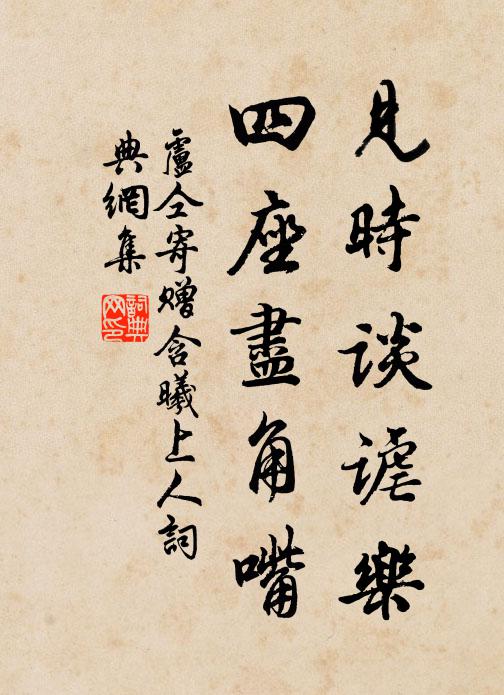 見時談謔樂
四座盡角嘴
盧仝寄贈含曦上人詞
典網集
詞典網印